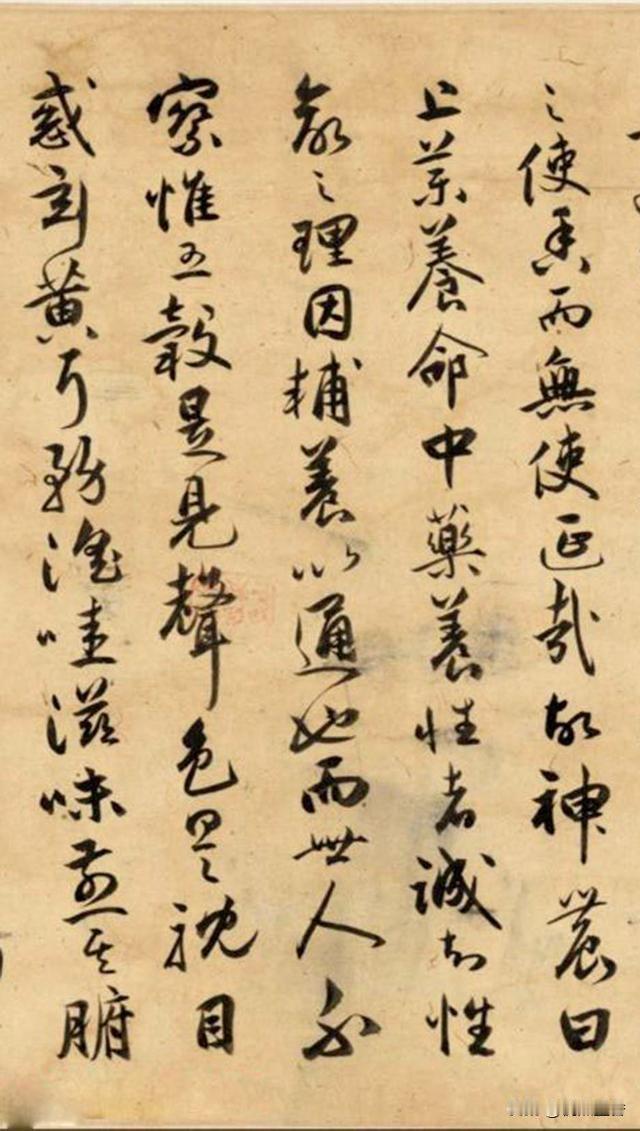 之使香而無使延哉故神農曰
上藥養命中藥養性者誠知性
命之理因輔養以通也而世人不
察惟五穀是見聲色是耽目
惑玄黃耳務淫哇滋味煎其腑